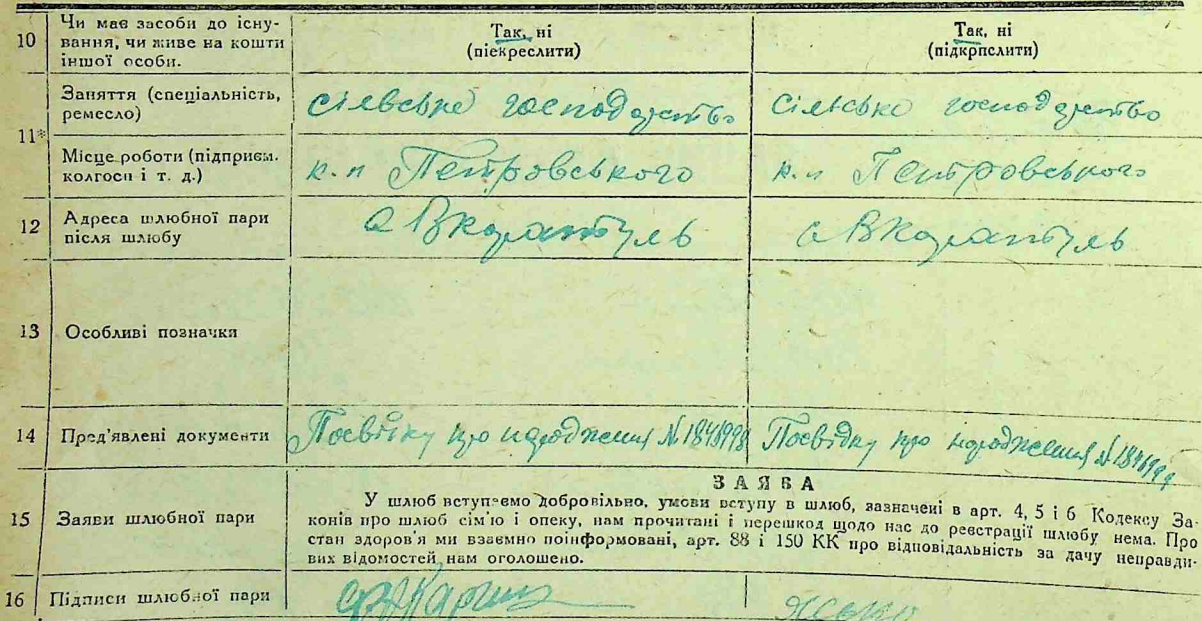 10 Чи має засоби до існу-
вання, чи живе на кошти
іншої особи.
Так, ні
(піекреслити)
Так, ні
(підкрпслити)
11*
Заняття (спеціальність,
ремесло)
сільське господарство
Сільське господарство
Місце роботи (підприєм.
колгосп і т. д.)
к.п Петровського
к.п Петровського
12 Адреса шлюбної пари
після шлюбу
с В Каратуль
с В Каратуль
13 Особливі позначки
14 Пред'явлені документи
Посвідку про народження №1848998
Посвідку про народження №
ЗАЯВА
15 Заяви шлюбної пари
У шлюб вступаємо добровільно, умови вступу в шлюб, зазначені в арт. 4, 5 і 6 Кодексу За-
конів про шлюб сім'ю і опеку, нам прочитані і перешкод щодо нас до реєстрації шлюбу нема. Про
стан здоров'я ми взаємно поінформовані, арт. 88 і 150 КК про відповідальність за дачу неправди-
вих відомостей нам оголошено.
16 Підписи шлюбної пари